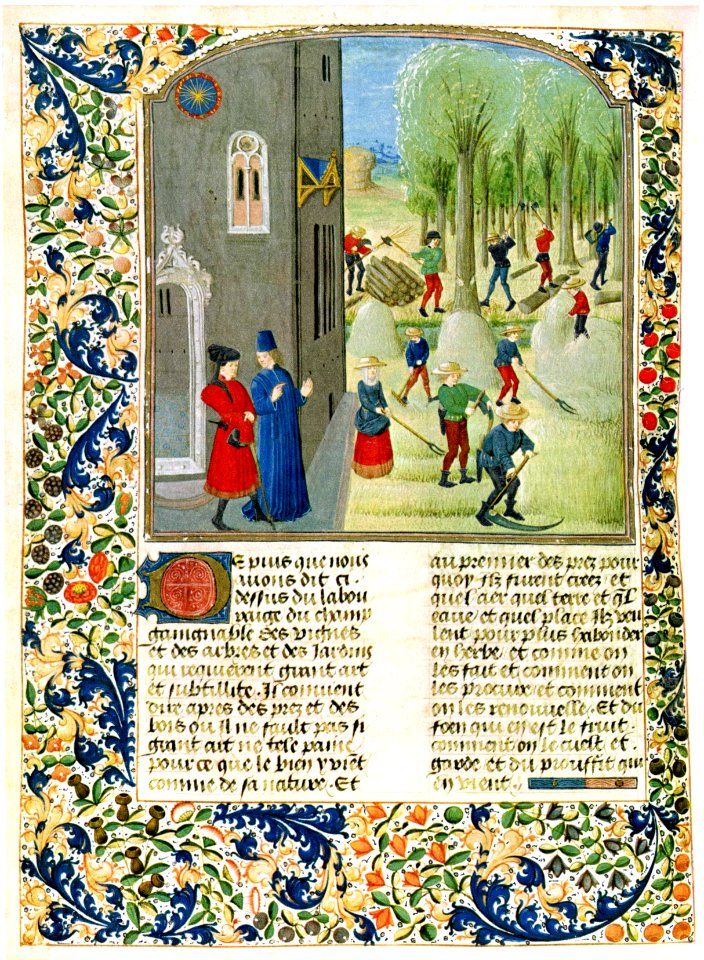 De puis que nous
auons dit ci
dessus du labou
raige du champ
gaingnable des vignes
et des arbres et des Jardins
qui requierent grant art
et subtillite. Il conuient
dire apres des prez et des
bois ou Il ne fault pas si
grant art ne tele paine
pour ce que le bien y viēt
comme de sa nature. Et
au premier des prez pour
quoy Ilz furent creez et
quel aer quel terre et ql
eaue et quel place Ilz veu
lent pour plus habonder
en herbe et comme on
les fait et comment on
les procure et comment
on les renouuelle. Et du
foen qui est le fruit
comment on le cuelt et
garde et du prouffit qui
en vient.